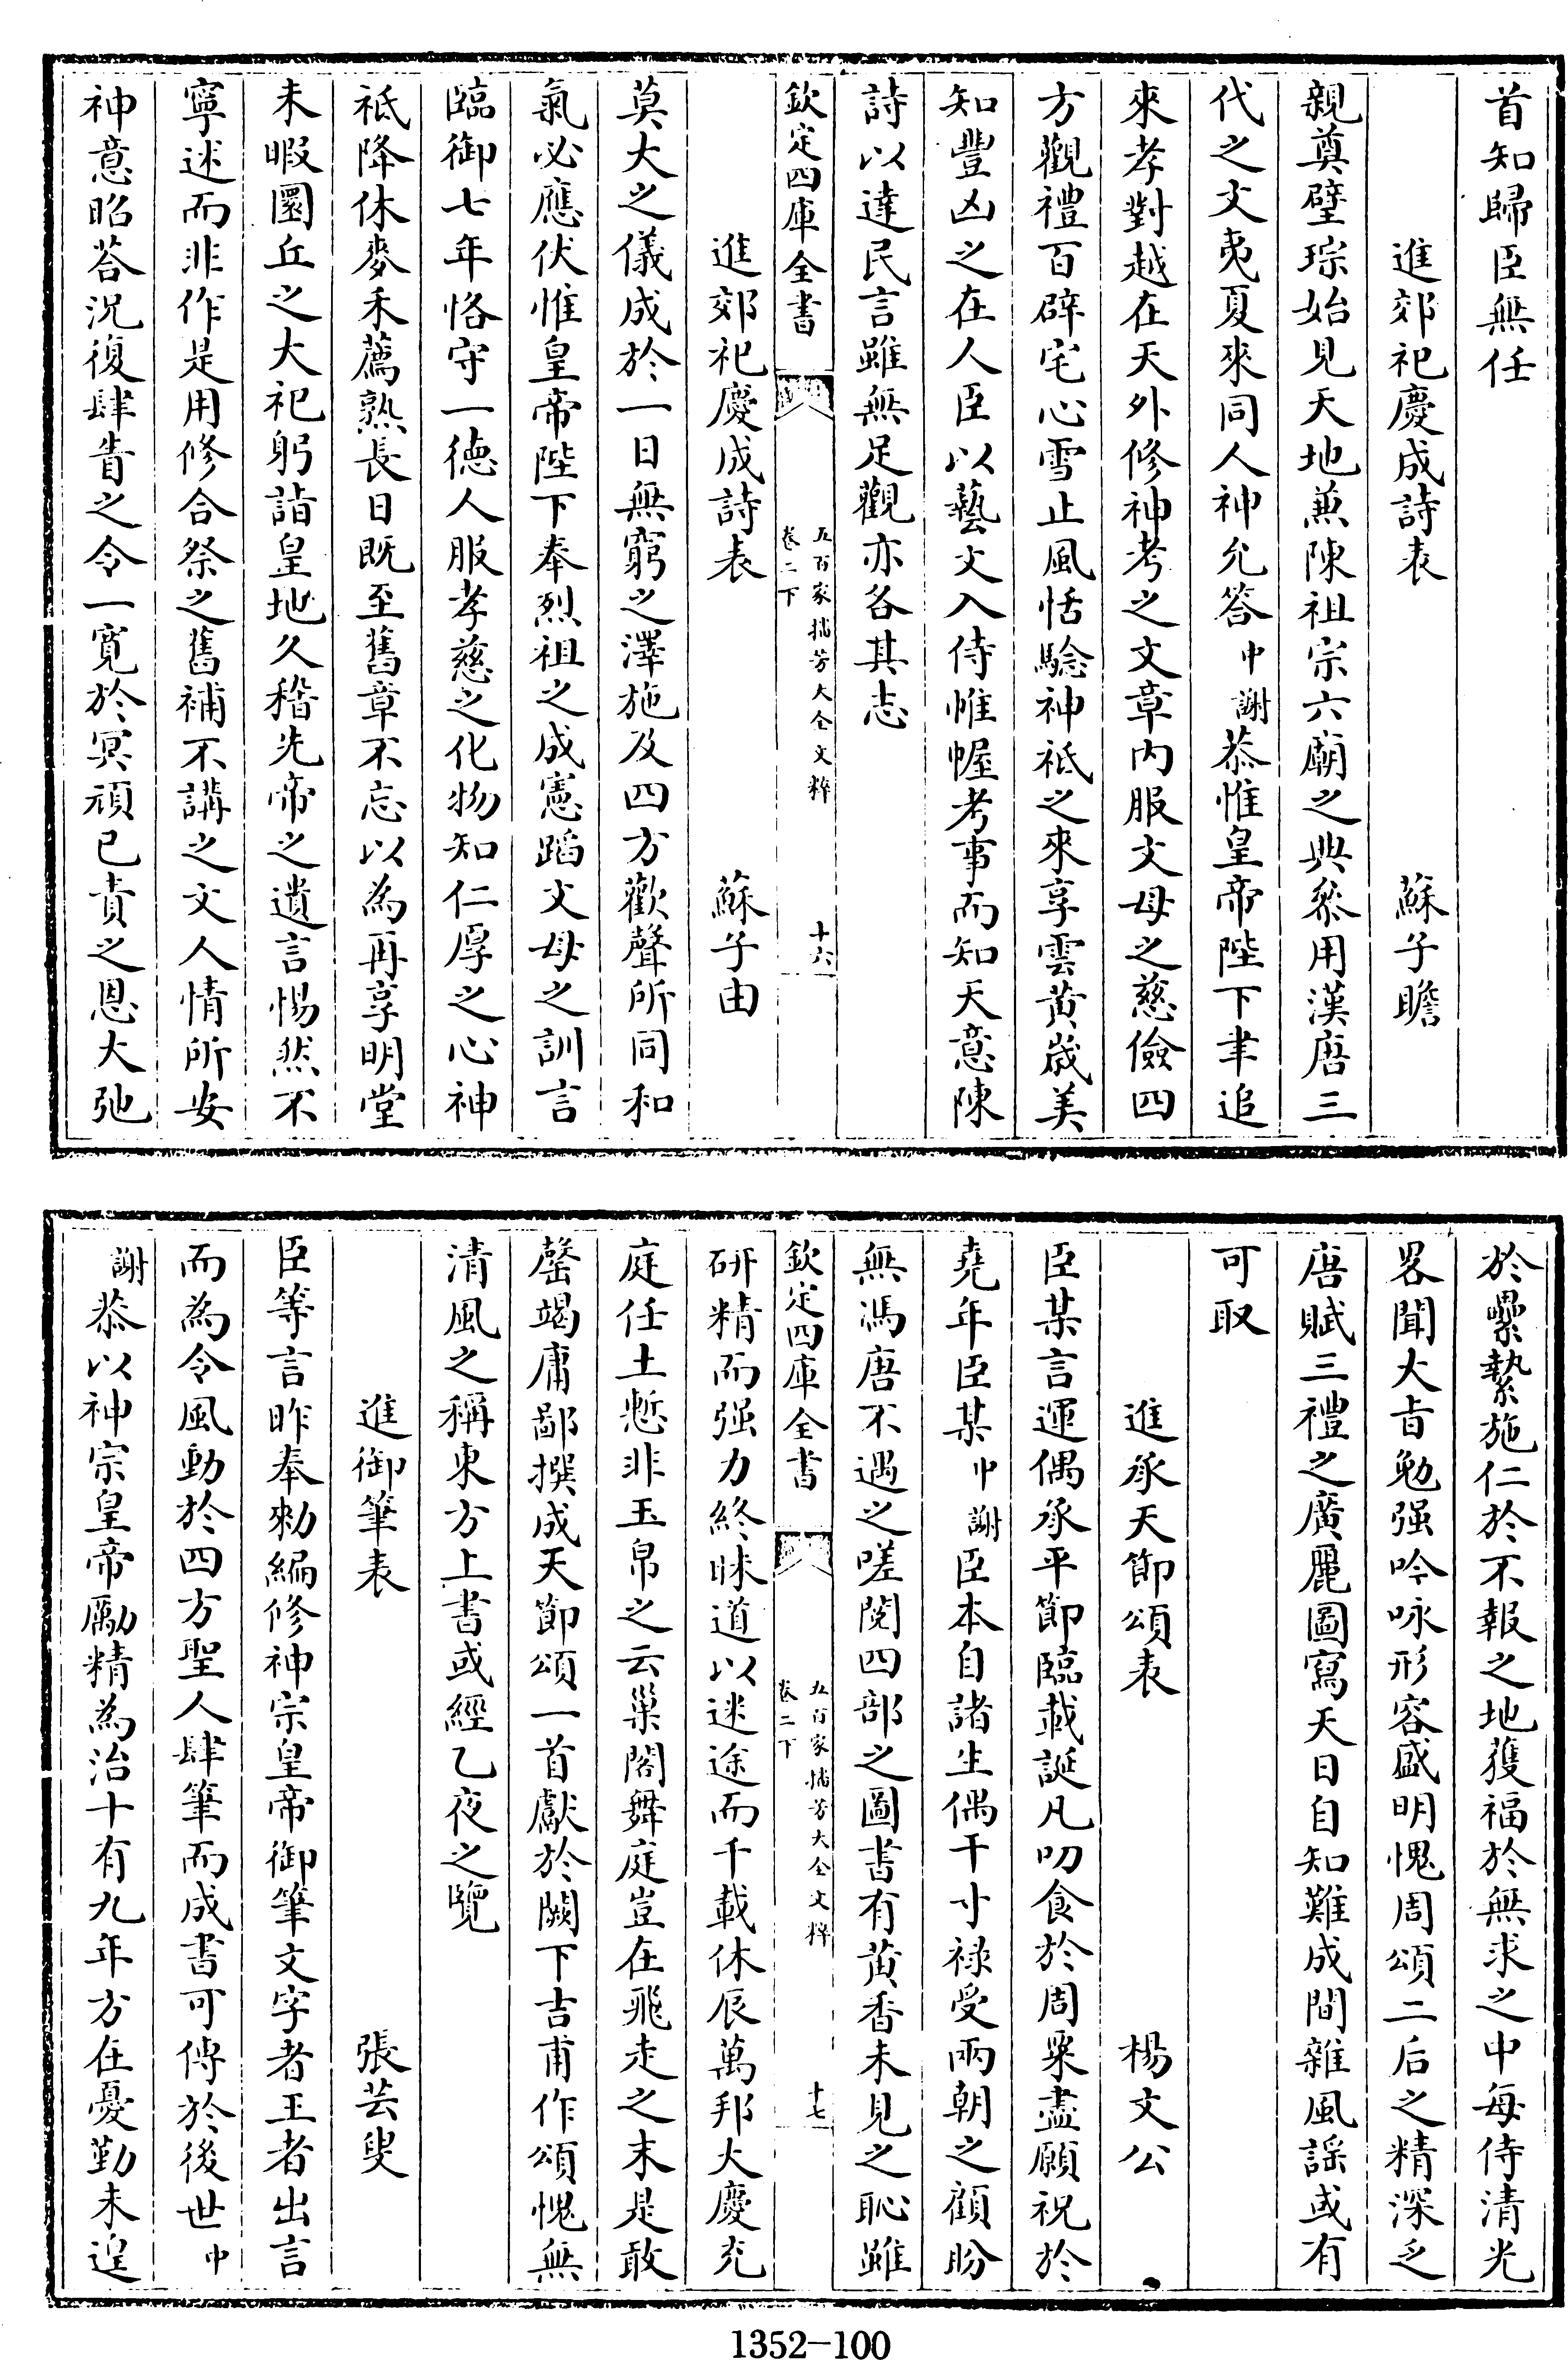 首知歸臣無任
進郊祀慶成詩表 蘇子瞻
親奠璧琮始見天地兼陳祖宗六廟之典叅用漢唐三
代之文夷夏來同人神允答中謝恭惟皇帝陛下聿追
來孝對越在天外修神考之文章内服文母之慈儉四
方觀禮百辟宅心雪止風恬驗神祗之來享雲黄歳美
知豐凶之在人臣以藝文入侍惟幄考事而知天意陳
詩以達民言雖無足觀亦各其志
欽定四庫全書 五百家播芳大全文粹 卷二下 十六
進郊祀慶成詩表 蘇子由
莫大之儀成於一日無窮之澤施及四方歡聲所同和
氣必應伏惟皇帝陛下奉烈祖之成憲蹈文母之訓言
臨御七年恪守一德人服孝慈之化物知仁厚之心神
祗降休麥禾薦熟長日既至舊章不忘以為再享明堂
未暇圜丘之大祀躬詣皇地久稽先帝之遺言惕然不
寧述而非作是用修合祭之舊補不講之文人情所安
神意昭荅況復肆眚之令一寛於冥頑已責之恩大弛
於纍縶施仁於不報之地獲福於無求之中每侍清光
畧聞大旨勉强吟咏形容盛明愧周頌二后之精深乏
唐賦三禮之廣麗圖寫天日自知難成間雜風謡或有
可取
進承天節頌表 楊文公
臣某言運偶承平節臨載誕凡叨食於周粟盡願祝於
堯年臣某中謝臣本自諸生偶干寸禄受兩朝之顧盼
無馮唐不遇之嗟閲四部之圖書有黄香未見之恥雖
欽定四庫全書 五百家播芳大全文粹 卷二下 十七
研精而强力終昧道以迷途而千載休辰萬邦大慶充
庭任土慙非玉帛之云巢閣舞庭豈在飛走之末是敢
罄竭庸鄙撰成天節頌一首獻於闕下吉甫作頌愧無
清風之稱東方上書或經乙夜之覽
進御筆表 張芸叟
臣等言昨奉勑編修神宗皇帝御筆文字者王者出言
而為令風動於四方聖人肆筆而成書可傳於後世中
謝恭以神宗皇帝勵精為治十有九年方在憂勤未遑
1352-100